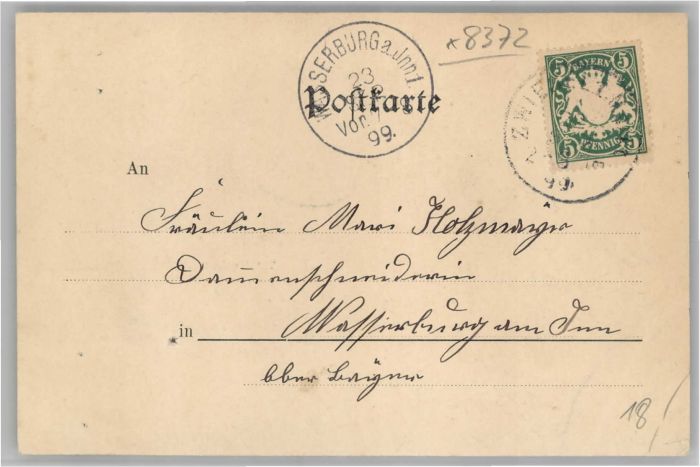 *8372
WASSERBURG a. Inn 1.
23
Vor. 7
99.
Postkarte
5 BAYERN 5
5 PFENNIG 5
ZWIE
99
An
Fräulein Mari Holzmayer
Dammenschneiderin
in Wasserburg am Inn
Ober Baÿer
18